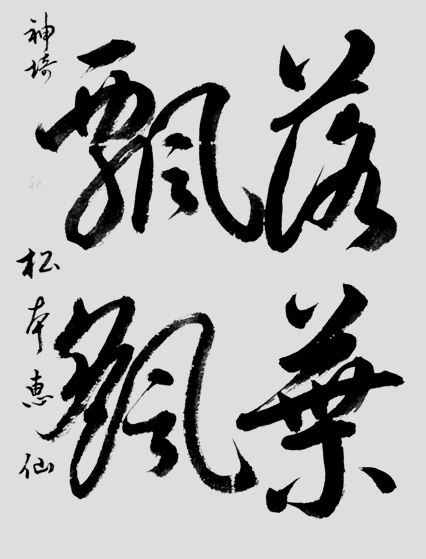 落葉
飄颻
神埼 松本恵仙